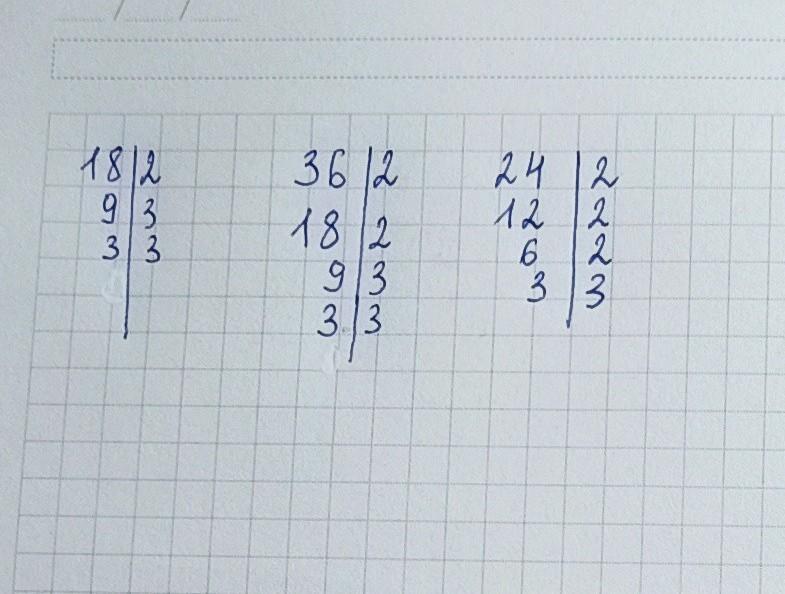 18|2
9|3
3|3
36|2
18|2
9|3
3|3
24|2
12|2
6|2
3|3